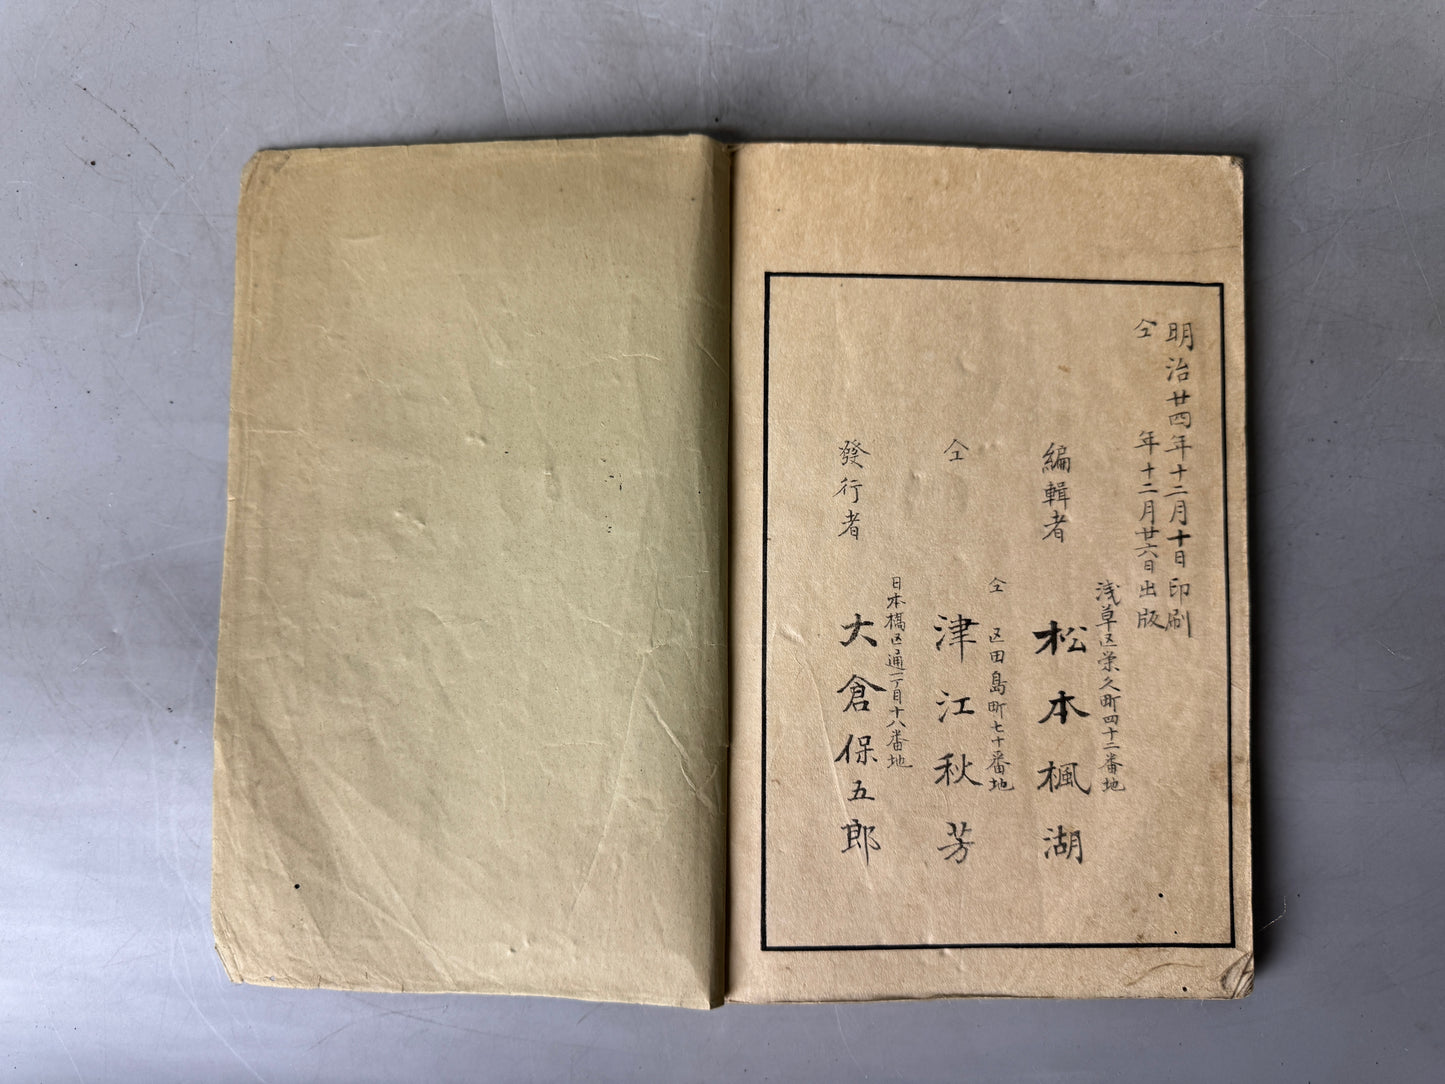 明治廿四年十二月十日印刷
仝　年十二月廿六日出版
浅草区栄久町四十二番地
編輯者　松本楓湖
仝　区田島町七十番地
仝　津江秋芳
日本橋区通一丁目十八番地
發行者　大倉保五郎